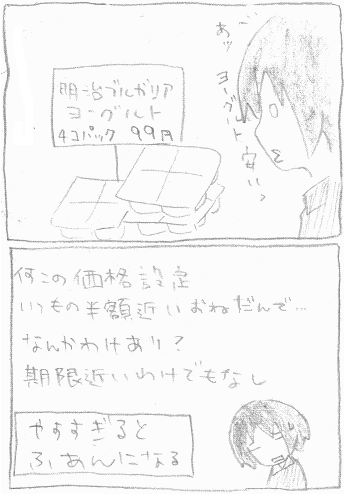 あッ
ヨーグルト
安いっ
明治ブルガリア
ヨーグルト
4コパック 99円
何この価格設定
いつもの半額近いおねだんで…
なんかわけあり?
期限近いわけでもなし
やすすぎると
ふあんになる